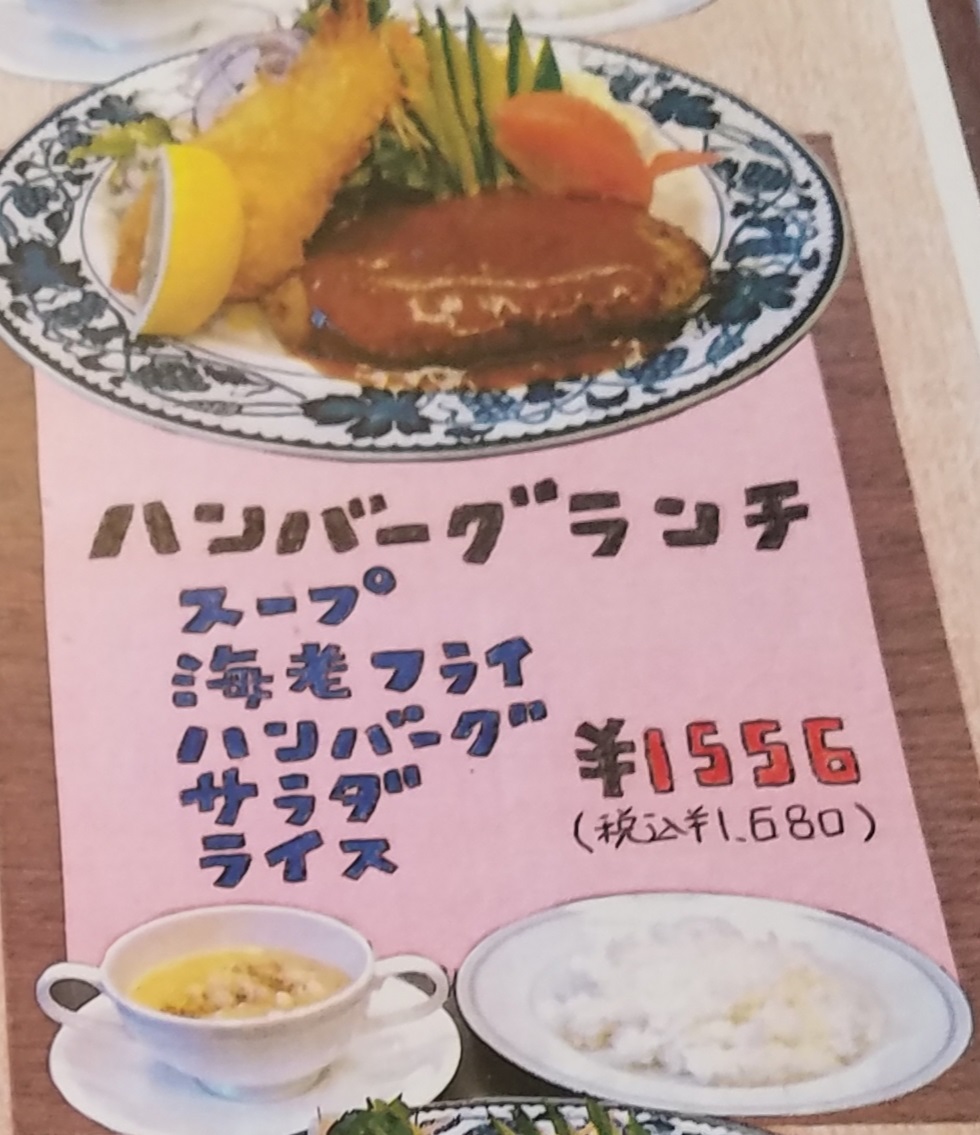 ハンバーグランチ
スープ
海老フライ
ハンバーグ
サラダ
ライス
¥1556
(税込¥1.680)